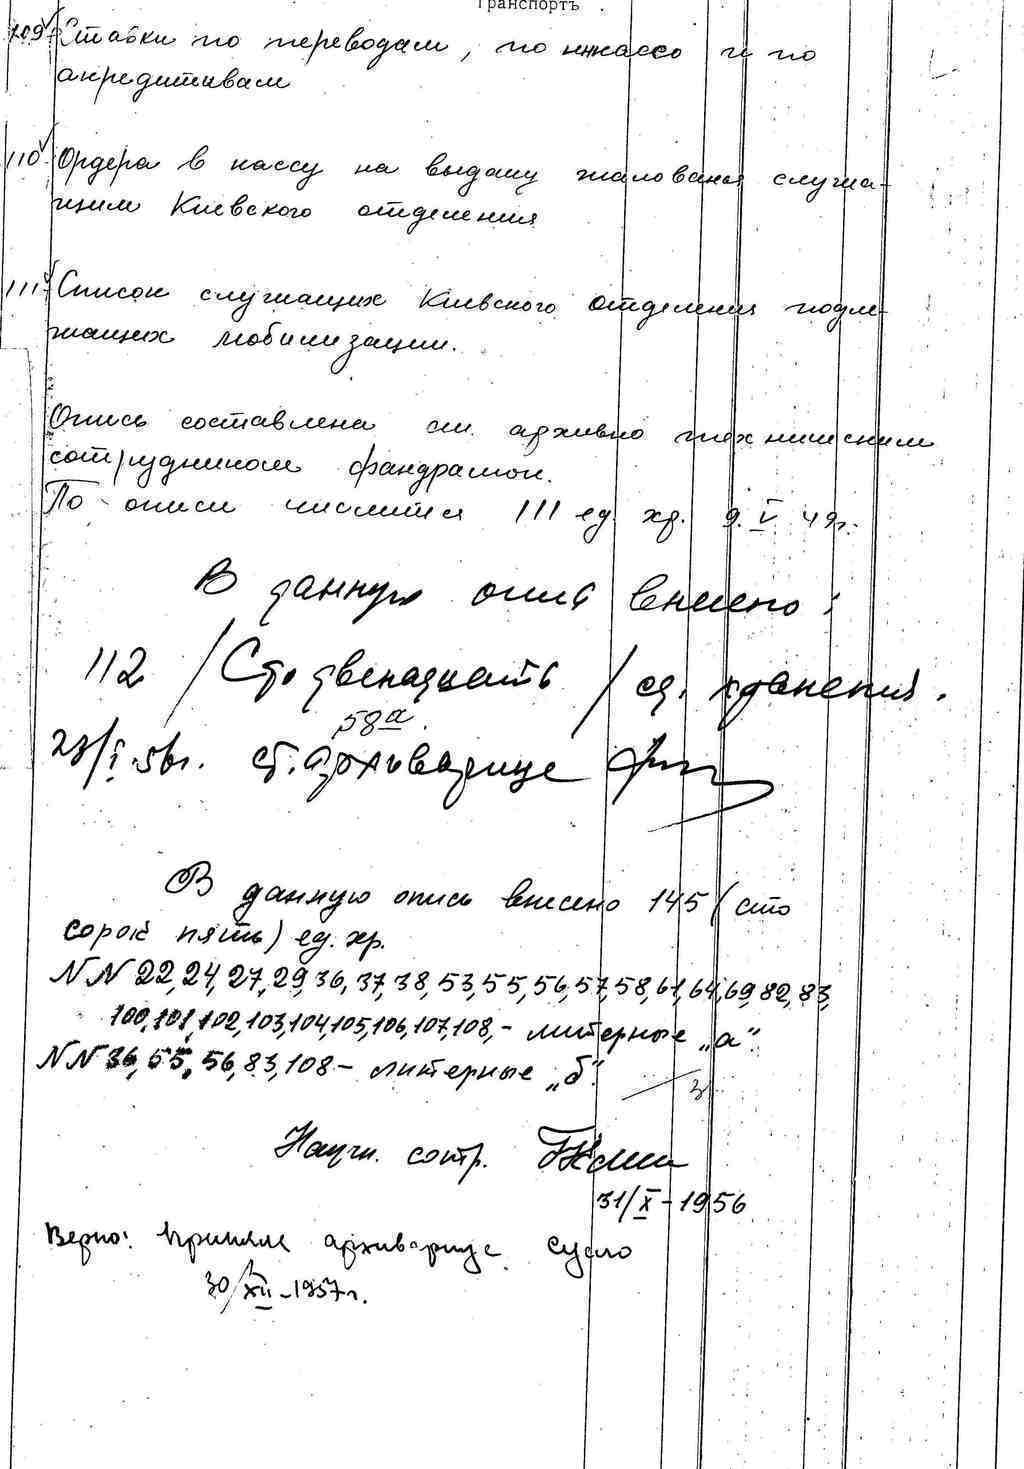 Транспортъ
109 Ставки по переводам, по инкассо и по
акредитивам
110 Ордера в кассу на выдачу жалования служа-
щим Киевского отделения
111 Список служащих Киевского отделения подле-
жащих мобилизации.
Опись составлена ст. архивно техническим
сотрудником Фандрамон.
По описи числится 111 ед. хр. 9. V 49г.
В данную опись внесено:
112 / Сто двенадцать / ед. хранения.
58а
23/I.56г. ст. Архивариус
В данную опись внесено 145 (сто
сорок пять) ед. хр.
NN 22, 24, 27, 29, 36, 37, 38, 53, 55, 56, 57, 58, 61, 64, 69, 82, 83,
100, 101, 102, 103, 104, 105, 106, 107, 108, - литерные „а".
NN 36, 55, 56, 83, 108 - литерные „б".
Научн. сотр.
31/X - 1956
Верно: Приняла архивариус
30/XII - 1957 г.